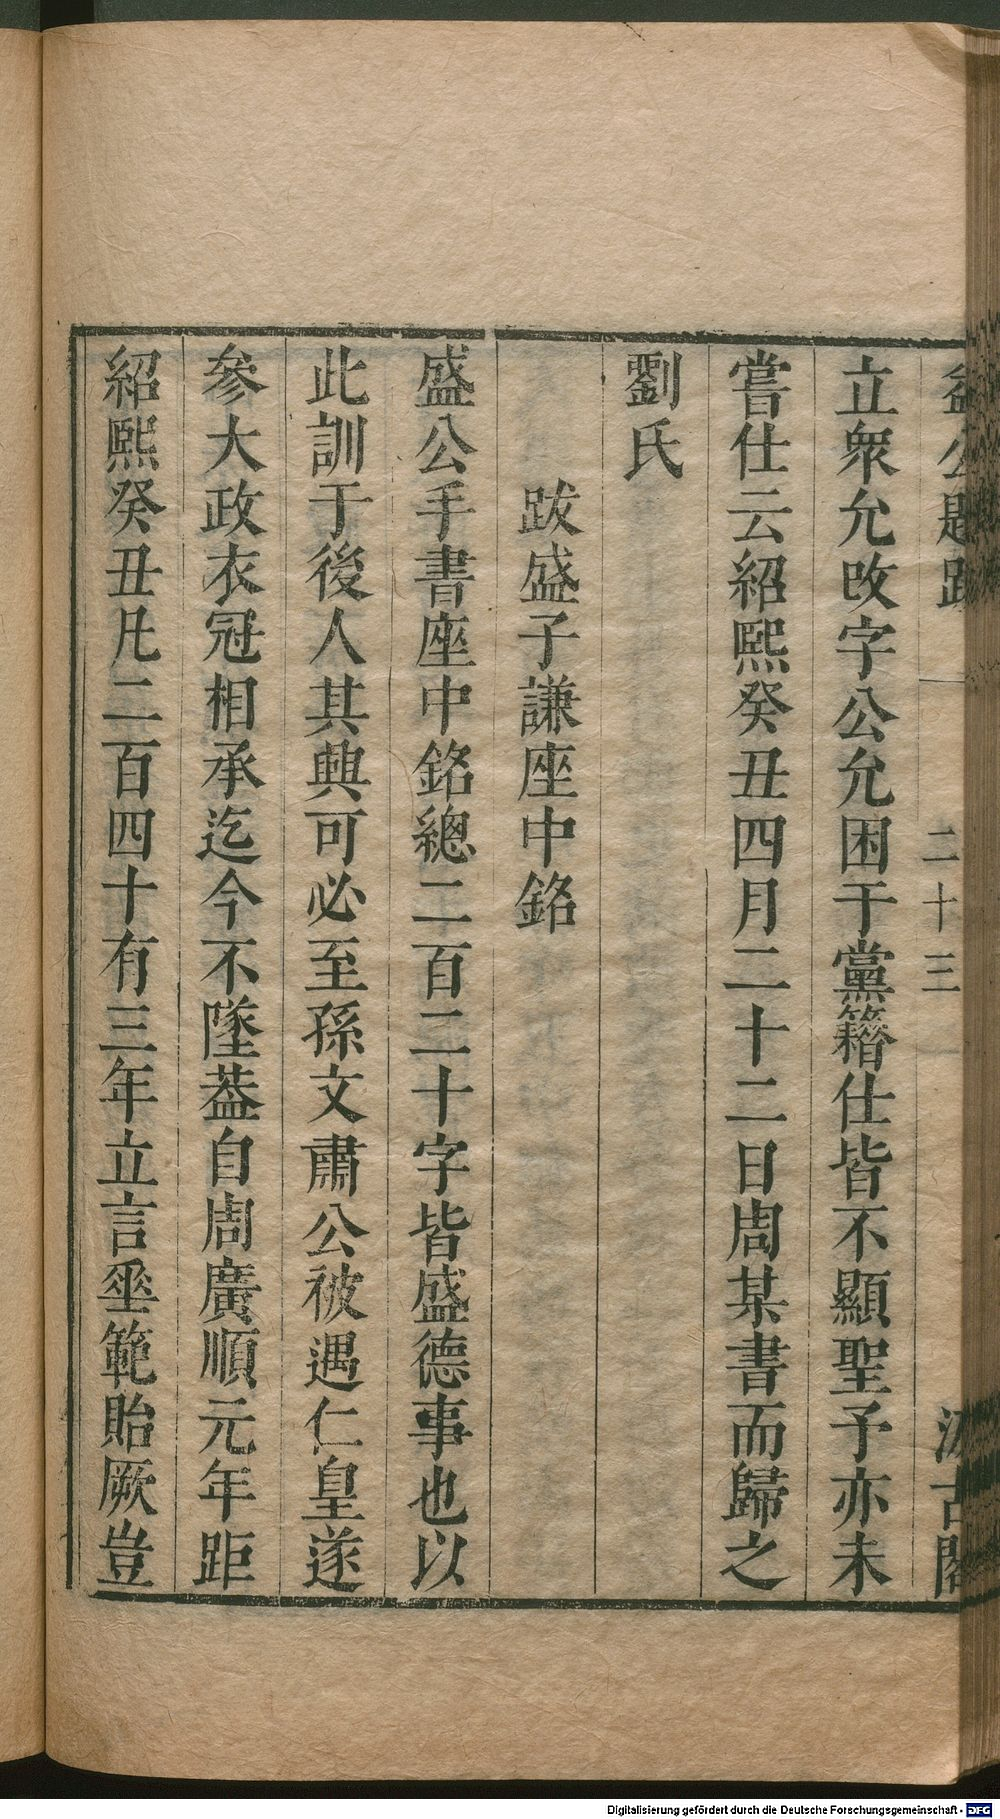 益公題跋 二十三 汲古閣
立衆允改字公允困于黨籍仕皆不顯聖予亦未
嘗仕云紹熙癸丑四月二十二日周某書而歸之
劉氏
跋盛子謙座中銘
盛公手書座中銘總二百二十字皆盛德事也以
此訓于後人其興可必至孫文肅公被遇仁皇遂
參大政衣冠相承迄今不墜葢自周廣順元年距
紹熙癸丑凡二百四十有三年立言垂範貽厥豈
Digitalisierung gefördert durch die Deutsche Forschungsgemeinschaft - DFG